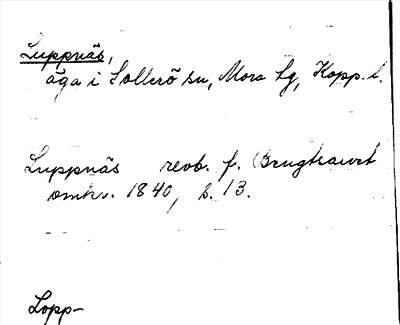 Luppnäs,
äga i Sollerö sn, Mora tg, Kopp. l.
Luppnäs revb. f. Brugtsarvet
omkr. 1840, s. 13.
Lopp-